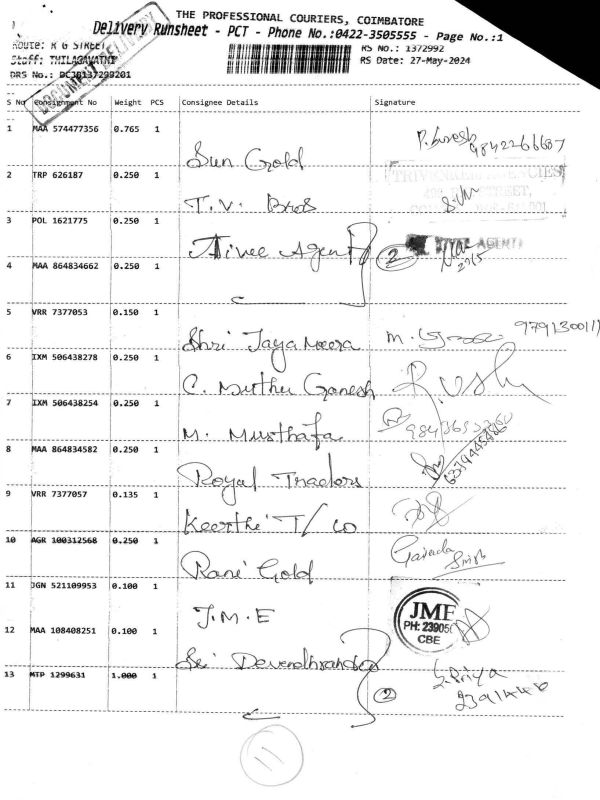 THE PROFESSIONAL COURIERS, COIMBATORE
Delivery Runsheet - PCT - Phone No.:0422-3505555 - Page No.:1
Route: R G STREET
RS No.: 1372992
Staff: THILAGAVATHI
RS Date: 27-May-2024
DRS No.: DCJB137299201
DOCUMENT DELIVERY
S No Consignment No Weight PCS Consignee Details Signature
1 MAA 574477356 0.765 1 Sun Gold P. Suresh 9842266687
2 TRP 626187 0.250 1 T.V. Bros
3 POL 1621775 0.250 1 Trivee Agent 2 AGENT
4 MAA 864834662 0.250 1
5 VRR 7377053 0.150 1 Shri Jaya Meera
6 IXM 506438278 0.250 1 C. Muthu Ganesh
7 IXM 506438254 0.250 1 M. Musthafa
8 MAA 864834582 0.250 1 Royal Traders
9 VRR 7377057 0.135 1 Keerthi T/ co
10 AGR 100312568 0.250 1 Rani Gold
11 JGN 521109953 0.100 1 J.M.E JMF
PH: 239050
CBE
12 MAA 108408251 0.100 1 Sri Devendhrando
13 MTP 1299631 1.000 1 2 S. Priya
11